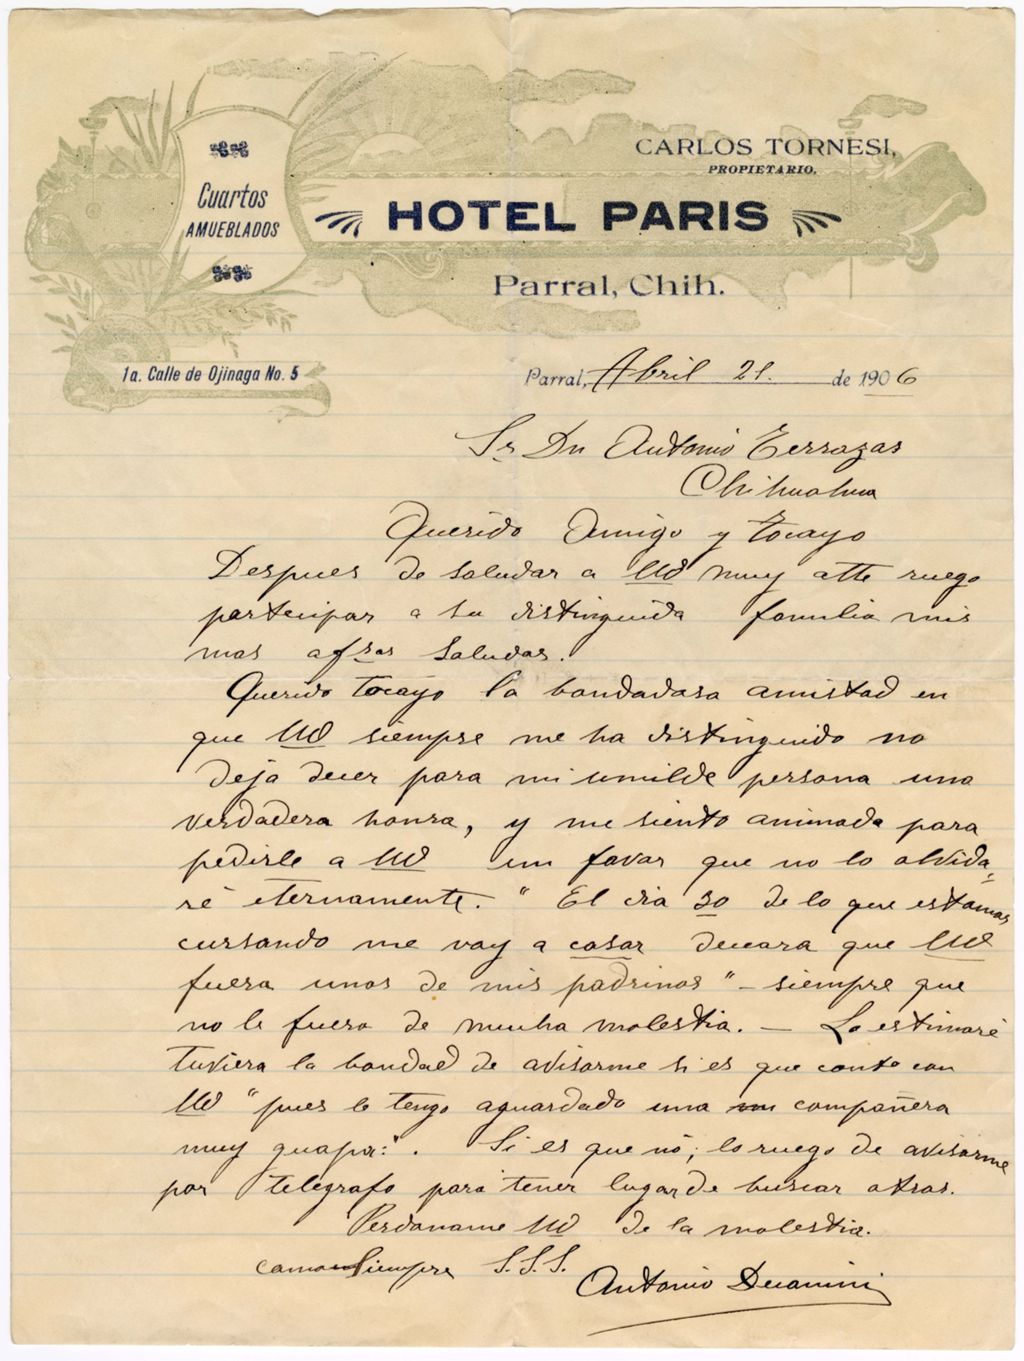 CARLOS TORNESI,
PROPIETARIO.
Cuartos
AMUEBLADOS
HOTEL PARIS
Parral, Chih.
1a. Calle de Ojinaga No. 5
Parral, Abril 21. de 1906
Sr Dn Antonio Terrazas
Chihuahua
Querido Amigo y tocayo
Despues de saludar a Ud muy atte ruego
partecipar a su distinguida familia mis
mas afsas saludas.
Querido tocayo la bondadosa amistad en
que Ud siempre me ha distinguido no
deja de cer para mi umilde persona una
verdadera honra, y me siento animado para
pedirle a Ud un favor que no lo olvida-
ré eternamente. "El dia 30 de lo que estamos
cursando me voy a casar deceara que Ud
fuera unos de mis padrinos" - siempre que
no le fuera de mucha molestia. - Lo estimaré
tuviera la bondad de avisarme si es que conto con
Ud "pues le tengo aguardado una compañera
muy guapa:". Si es que nó; lo ruego de avisarme
por telégrafo para tener lugar de buscar otros.
Perdoname Ud de la molestia.
como Siempre S.S.S.
Antonio